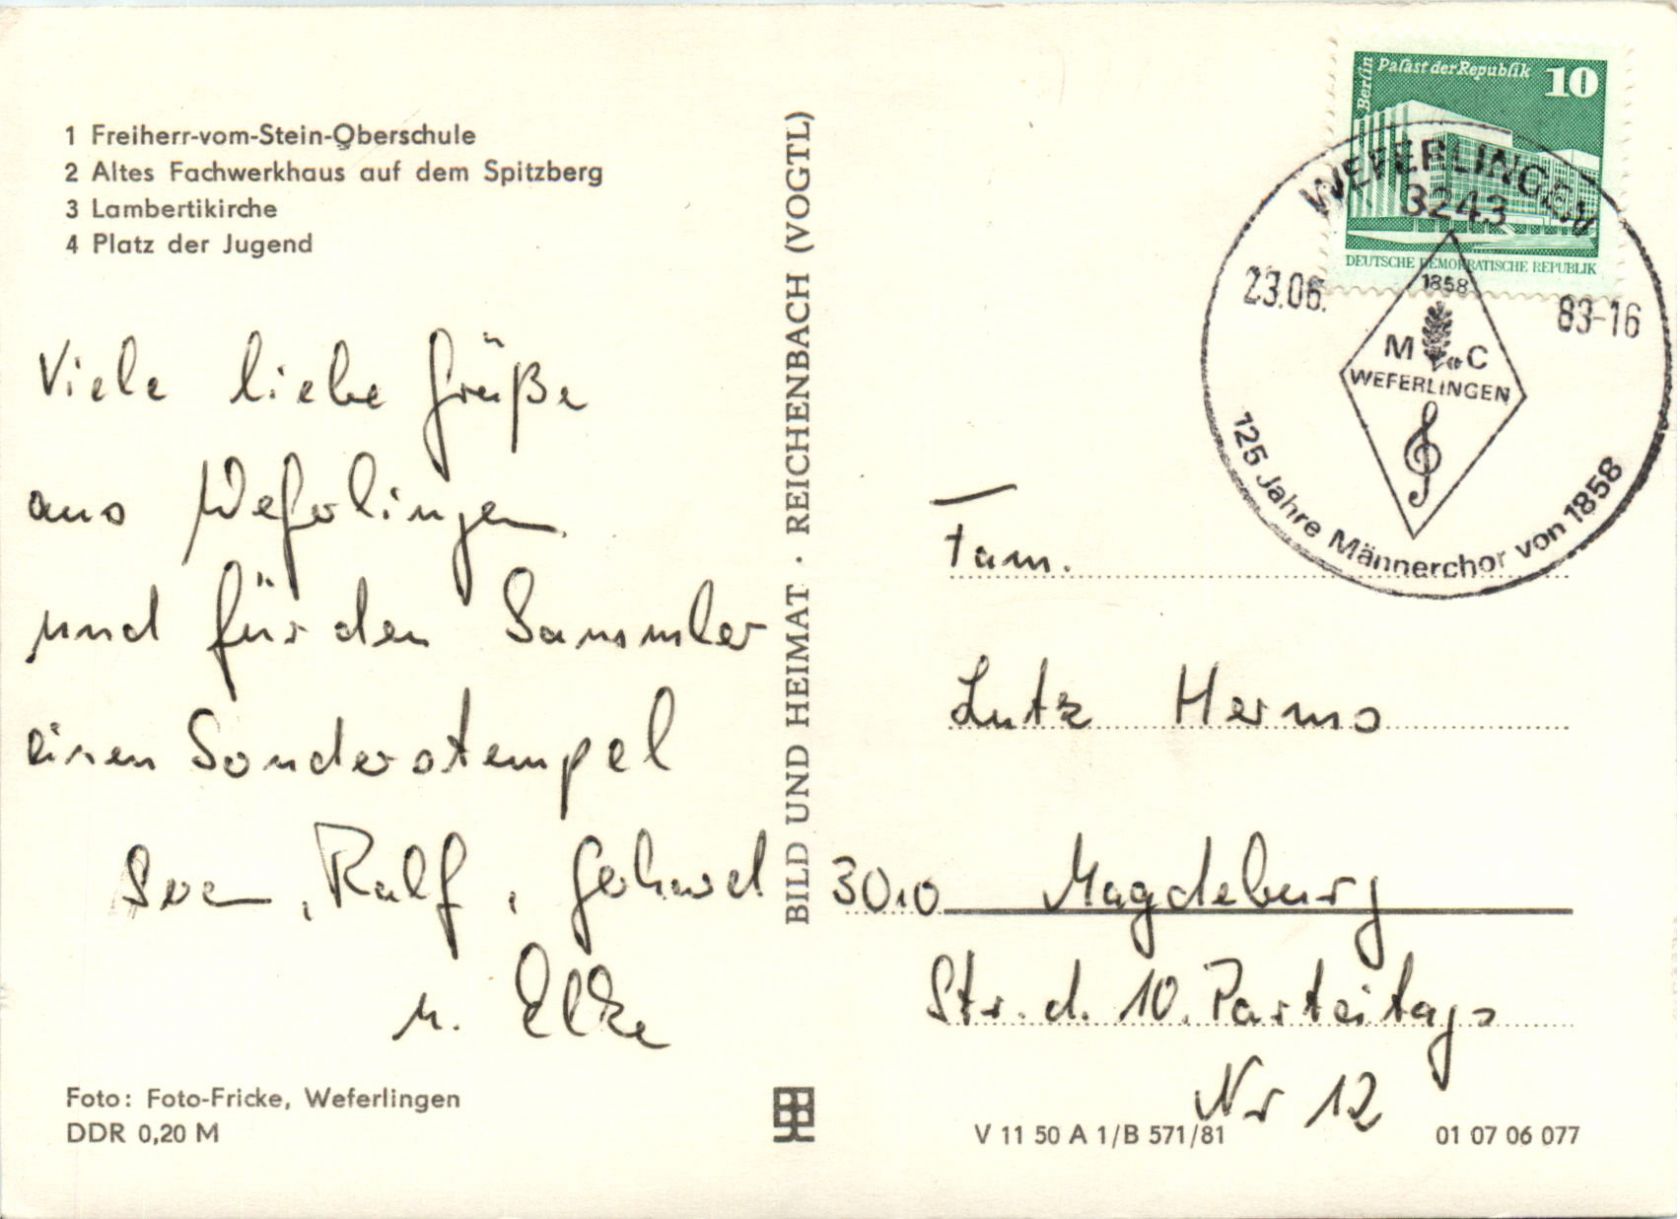 1 Freiherr-vom-Stein-Oberschule
2 Altes Fachwerkhaus auf dem Spitzberg
3 Lambertikirche
4 Platz der Jugend
Viele liebe Grüße
aus Weferlingen
und für den Sammler
einen Sonderstempel
Sven, Ralf, Gerhard
u. Elke
Foto: Foto-Fricke, Weferlingen
DDR 0,20 M
BILD UND HEIMAT · REICHENBACH (VOGTL)
Berlin
Palast der Republik
10
DEUTSCHE DEMOKRATISCHE REPUBLIK
WEFERLINGEN
3243
23.06. 83-16
1858
M C
WEFERLINGEN
125 Jahre Männerchor von 1858
Fam.
Lutz Herms
3010 Magdeburg
Str. d. 10. Parteitags
Nr 12
V 11 50 A 1/B 571/81
01 07 06 077